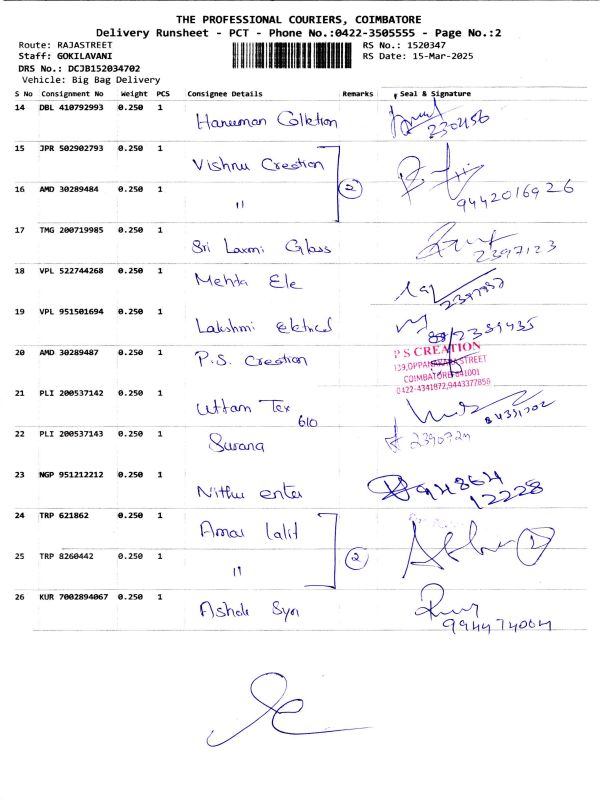 THE PROFESSIONAL COURIERS, COIMBATORE
Delivery Runsheet - PCT - Phone No.:0422-3505555 - Page No.:2
Route: RAJASTREET RS No.: 1520347
Staff: GOKILAVANI RS Date: 15-Mar-2025
DRS No.: DCJB152034702
Vehicle: Big Bag Delivery
S No Consignment No Weight PCS Consignee Details Remarks Seal & Signature
14 DBL 410792993 0.250 1 Hanuman Colletion 230456
15 JPR 502902793 0.250 1 Vishnu Creation
16 AMD 30289484 0.250 1 " 2 9442016926
17 TMG 200719985 0.250 1 Sri Laxmi Glass 2397123
18 VPL 522744268 0.250 1 Mehta Ele
19 VPL 951501694 0.250 1 Lakshmi 
20 AMD 30289487 0.250 1 P.S. Creation
P S CREATION
139, OPPANAKARA STREET
COIMBATORE-641001
0422-4341872,9443377856
21 PLI 200537142 0.250 1 Uttam Tex 610
22 PLI 200537143 0.250 1 Surana
23 NGP 951212212 0.250 1 Nithu 94864
12228
24 TRP 621862 0.250 1 Amar lalit
25 TRP 8260442 0.250 1 " 2
26 KUR 7002894067 0.250 1 Ashok Syn
9944474004